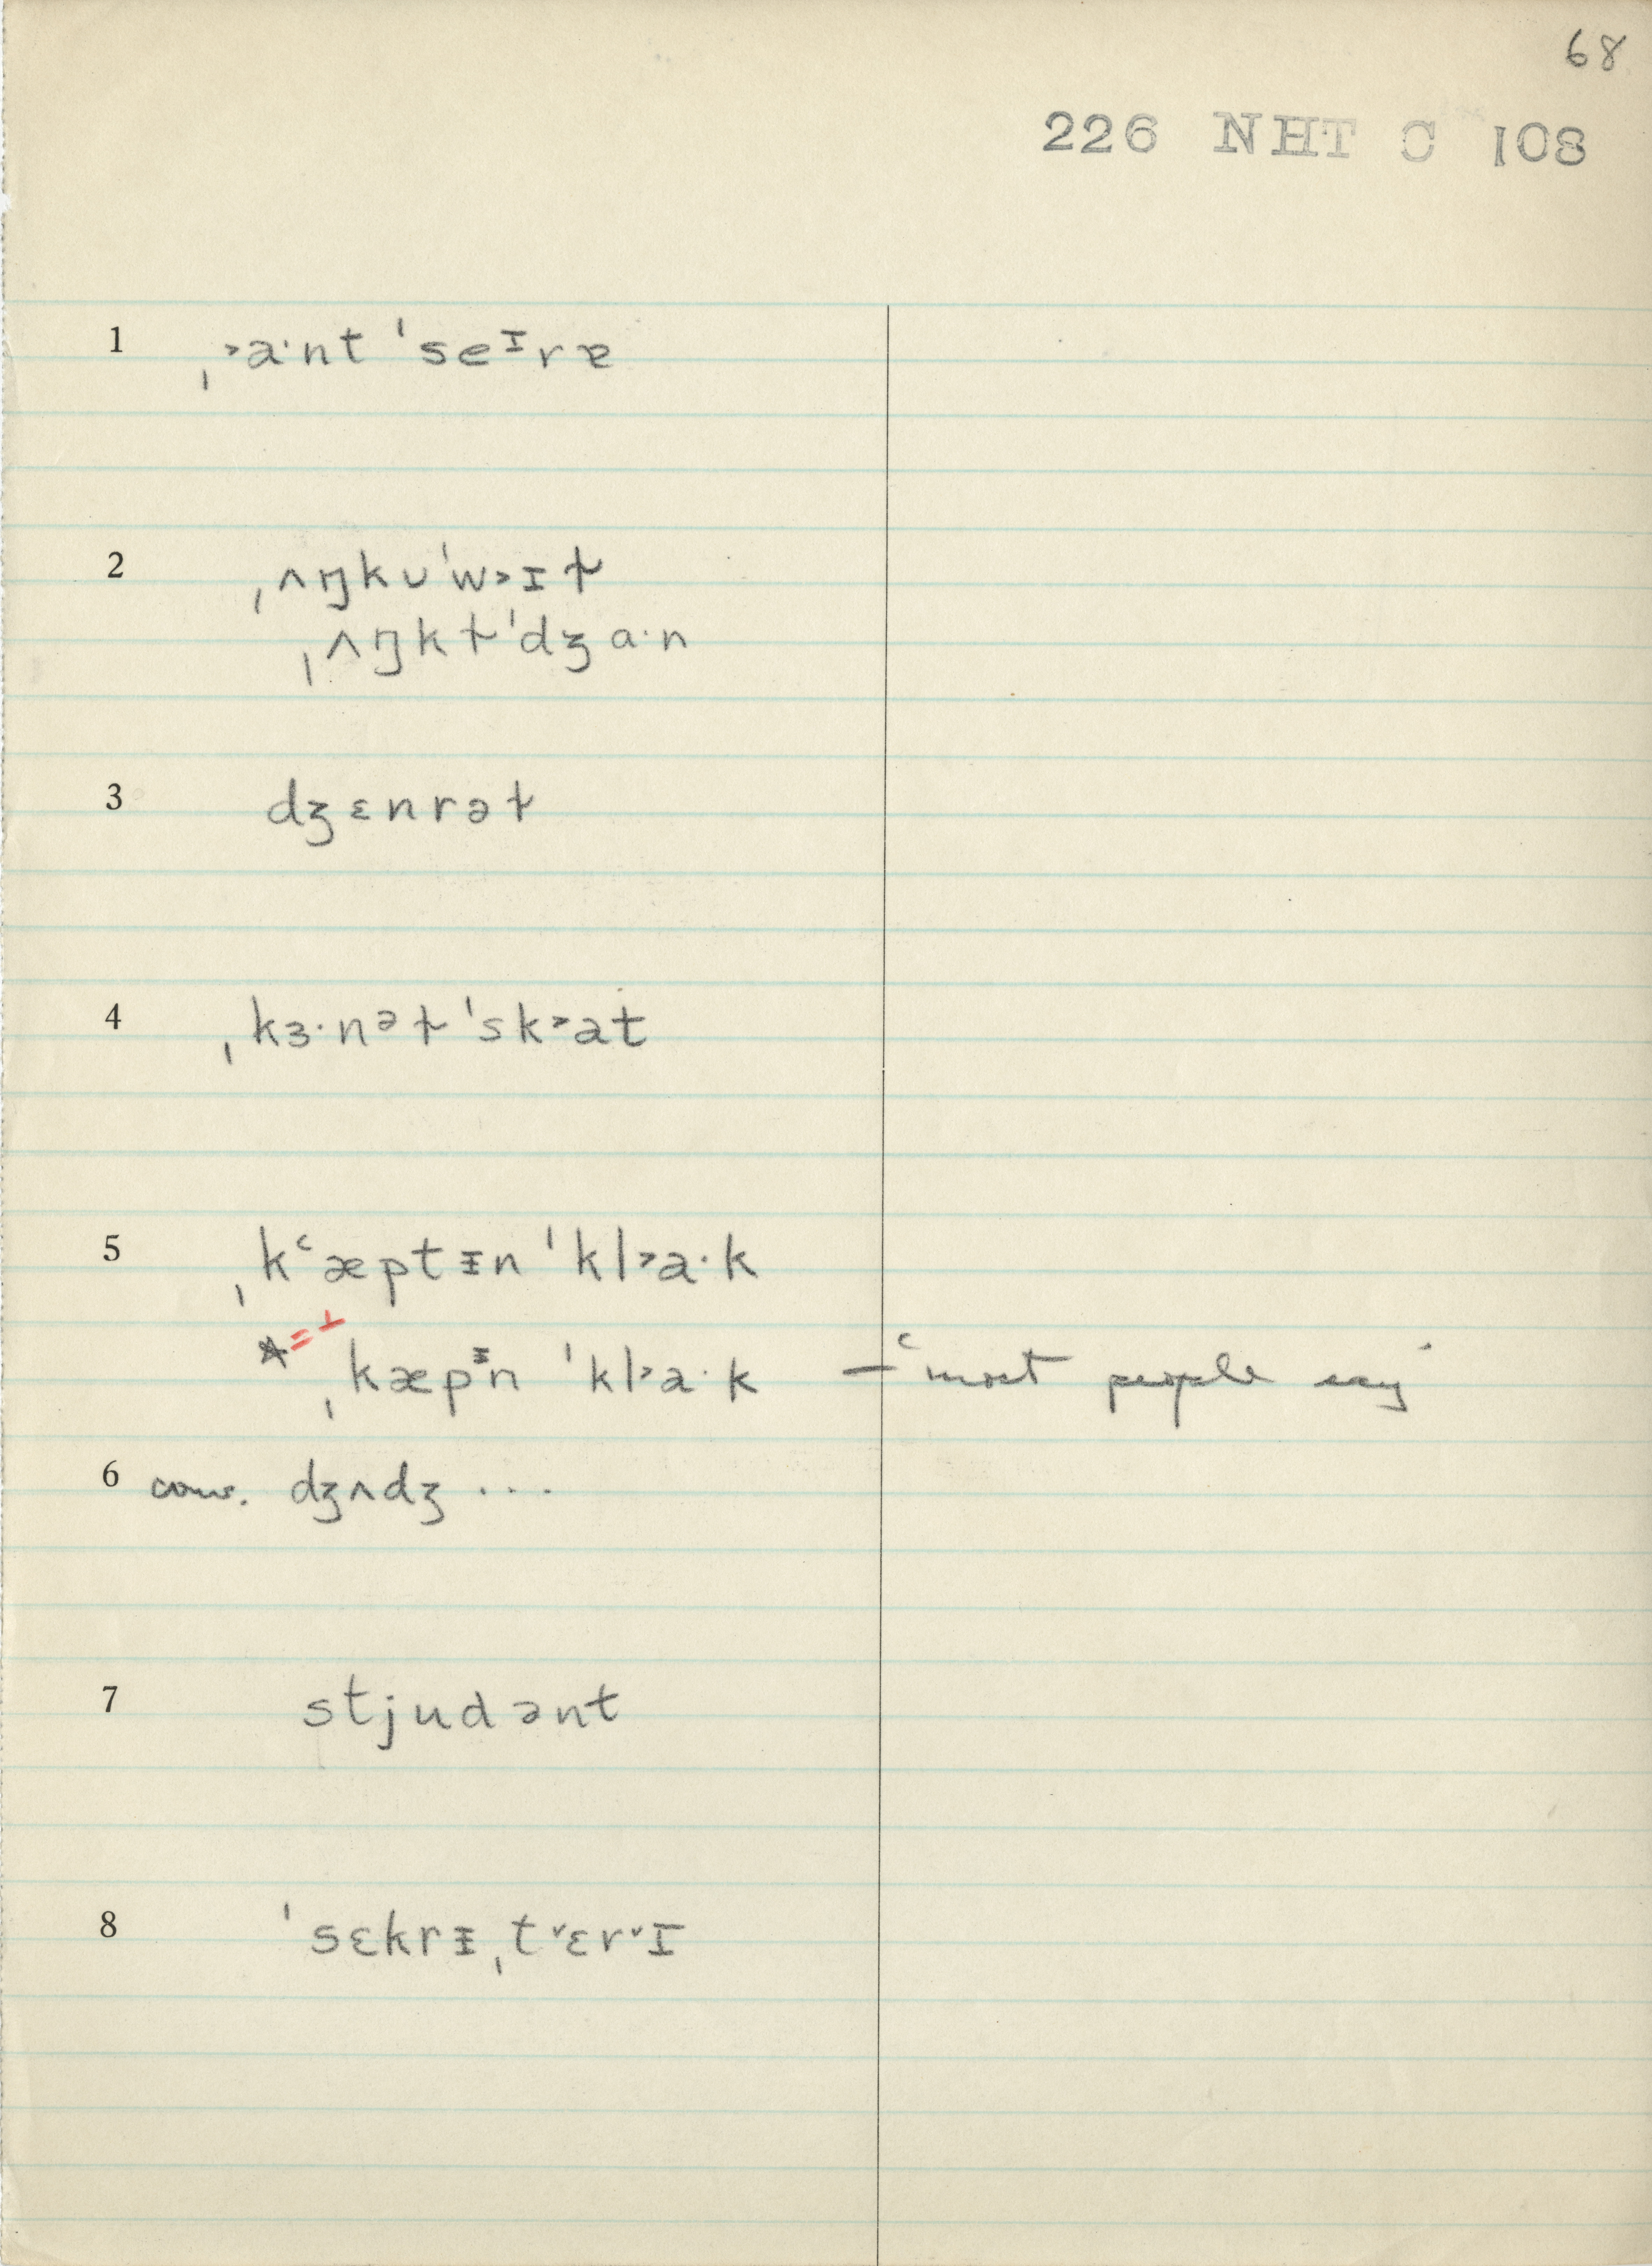 68
226 NHT C 108
1 ˌ˃a·nt ˈseᶦrɐ
2 ˌʌŋkʊˈw˃ɪɫ
ˌʌŋkɫˈdʒɑ·n
3 dʒɛnrəɫ
4 ˌkɜ·nᵊɫ ˈsk˃at
5 ˌkʿæptᵻn ˈkl˃a·k
* = ⊥
ˌkæpᵻn ˈkl˃a·k — ‘most people say’
6 conv. dʒʌdʒ ...
7 stjudənt
8 ˈsɛkrᵻˌt˅ɛr˅ɪ